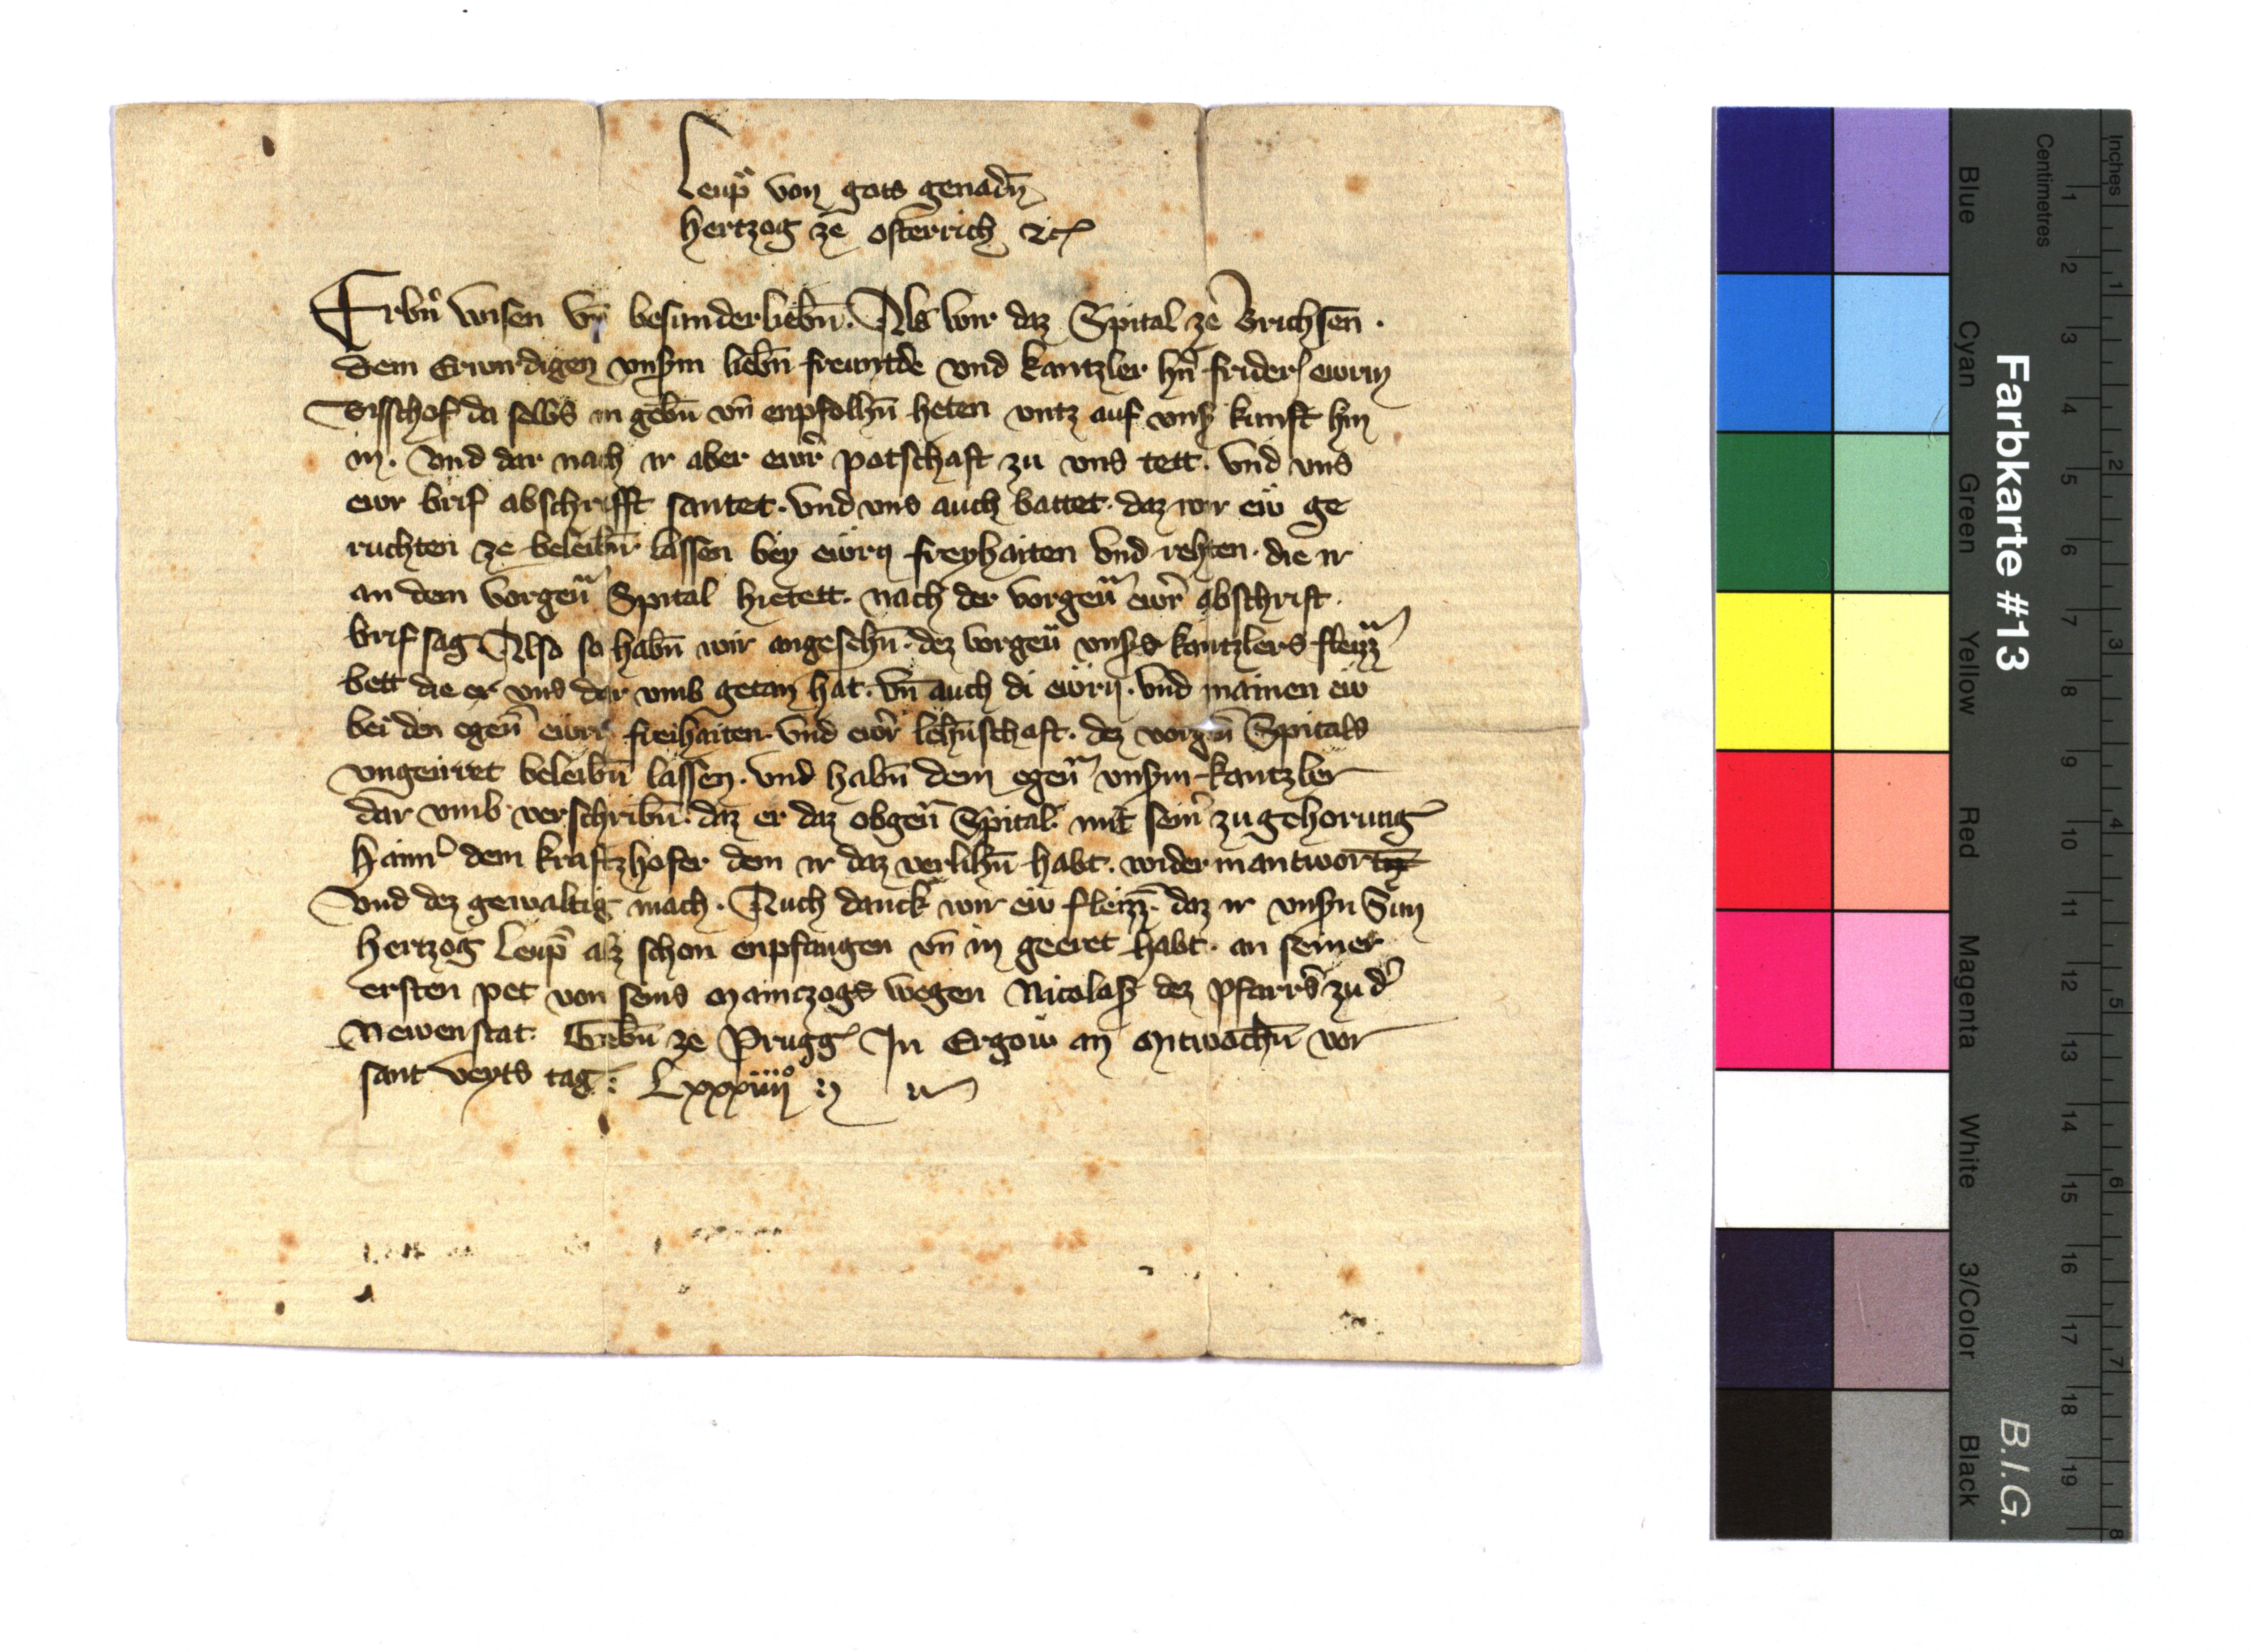 Leup von gots genadn
hertzog ze Osterrich etc
Erbn wisen vn besunderliebn. Als wir daz Spital ze Brichsen.
dem Erwirdigen vnserm liebn freuntde vnd kantzler hn frider ewrm
Bisschof da selbs in gebn vn enpfolhn heten vntz auf vnser kunft hin
in. Vnd dar nach ir aber ewr potschaft zu vns tett. Vnd vns
ewr brif abschrifft santet. Vnd vns auch battet. daz wir ew ge
ruchten ze beleibn lassen bey ewrn freyhaiten vnd rehten. die ir
an dem vorgen Spital hietett. nach der vorgen ewr abschrift.
brif sag Also so habn wir angesehn. dez vorgen vnsers kantzlers fleizz
bett die er vns dar vmb getan hat. vn auch di ewrn. vnd mainen ew
bei den egen ewrn freihaiten. vnd ewr lehnschaft. dez vorgen Spitals
vngeirret beleibn lassen. vnd habn dem egen vnserm kantzler
dar vmb verschribn. daz er daz obgen Spital. mit seinr zugehorung
Hainr dem kraftzhofer dem ir daz verlihn habt. wider in antwort
Vnd dez gewaltig mach. Auch danck wir ew fleizz. daz ir vnsern Sun
Hertzog Leup alz schon enpfangen vn in geeret habt. an seiner
ersten pet von seins mainczogs wegen Nicolasz dez Pfarrs zu dr
Newenstat. Gebn ze Prugg In Ergow an mitwochn vor
sant Veyts tag. Lxxxiiii°